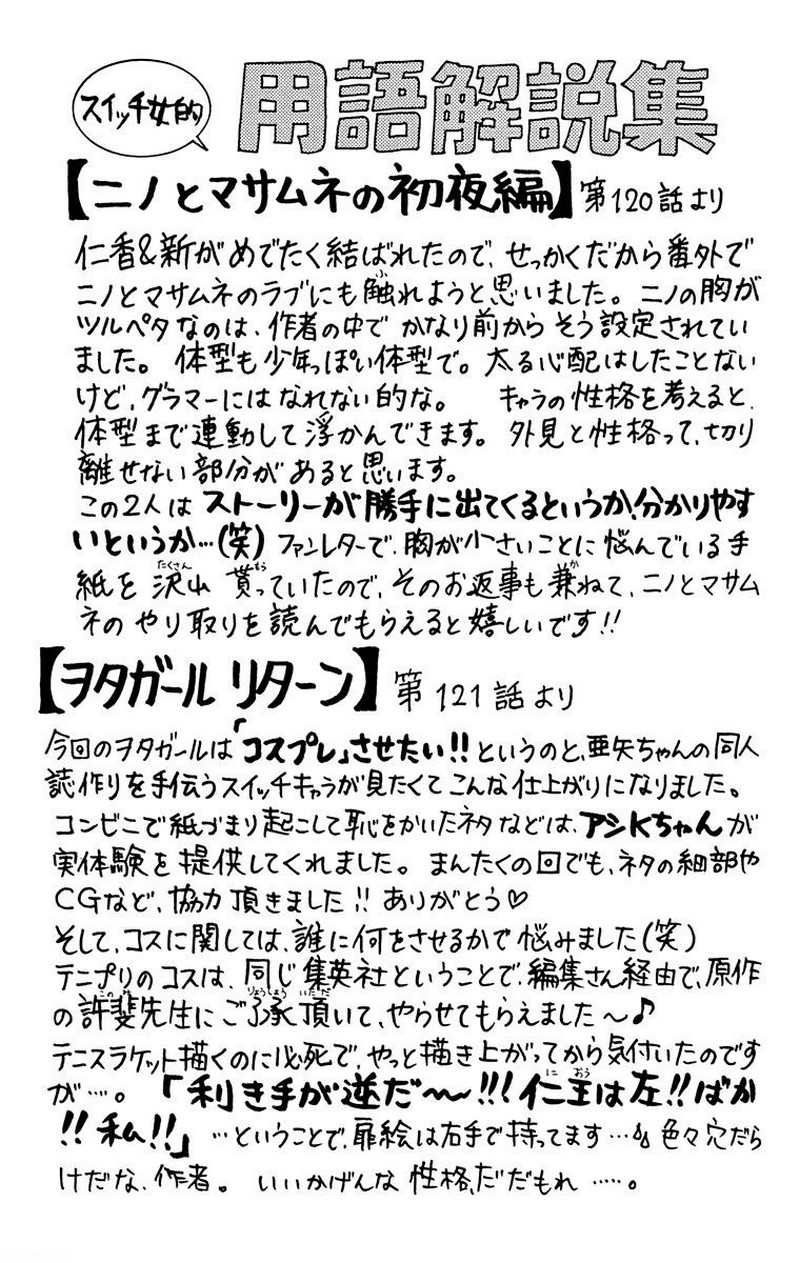 スイッチ女的
用語解説集
【ニノとマサムネの初夜編】第120話より
仁香&新がめでたく結ばれたので、せっかくだから番外で
ニノとマサムネのラブにも触れようと思いました。ニノの胸が
ツルペタなのは、作者の中でかなり前からそう設定されてい
ました。体型も少年っぽい体型で。太る心配はしたことない
けど、グラマーにはなれない的な。 キャラの性格を考えると、
体型まで連動して浮かんできます。外見と性格って、切り
離せない部分があると思います。
この2人はストーリーが勝手に出てくるというか、分かりやす
いというか…(笑)ファンレターで、胸が小さいことに悩んでいる手
紙を沢山貰っていたので、そのお返事も兼ねて、ニノとマサム
ネのやり取りを読んでもらえると嬉しいです!!
【ヲタガール リターン】第121話より
今回のヲタガールは「コスプレ」させたい!!というのと、亜矢ちゃんの同人
誌作りを手伝うスイッチキャラが見たくてこんな仕上がりになりました。
コンビニで紙づまり起こして恥をかいたネタなどは、アシKちゃんが
実体験を提供してくれました。まんたくの回でも、ネタの細部や
CGなど、協力頂きました!!ありがとう♡
そして、コスに関しては、誰に何をさせるかで悩みました(笑)
テニプリのコスは、同じ集英社ということで、編集さん経由で、原作
の許斐先生にご了承頂いて、やらせてもらえました〜♪
テニスラケット描くのに必死で、やっと描き上がってから気付いたのです
が…。「利き手が逆だ〜〜!!!仁王は左!!ばか
!!私!!」…ということで、扉絵は右手で持ってます… 色々穴だら
けだな、作者。いいかげんな性格、だだもれ……。